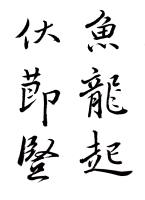 魚龍起
伏莭豎